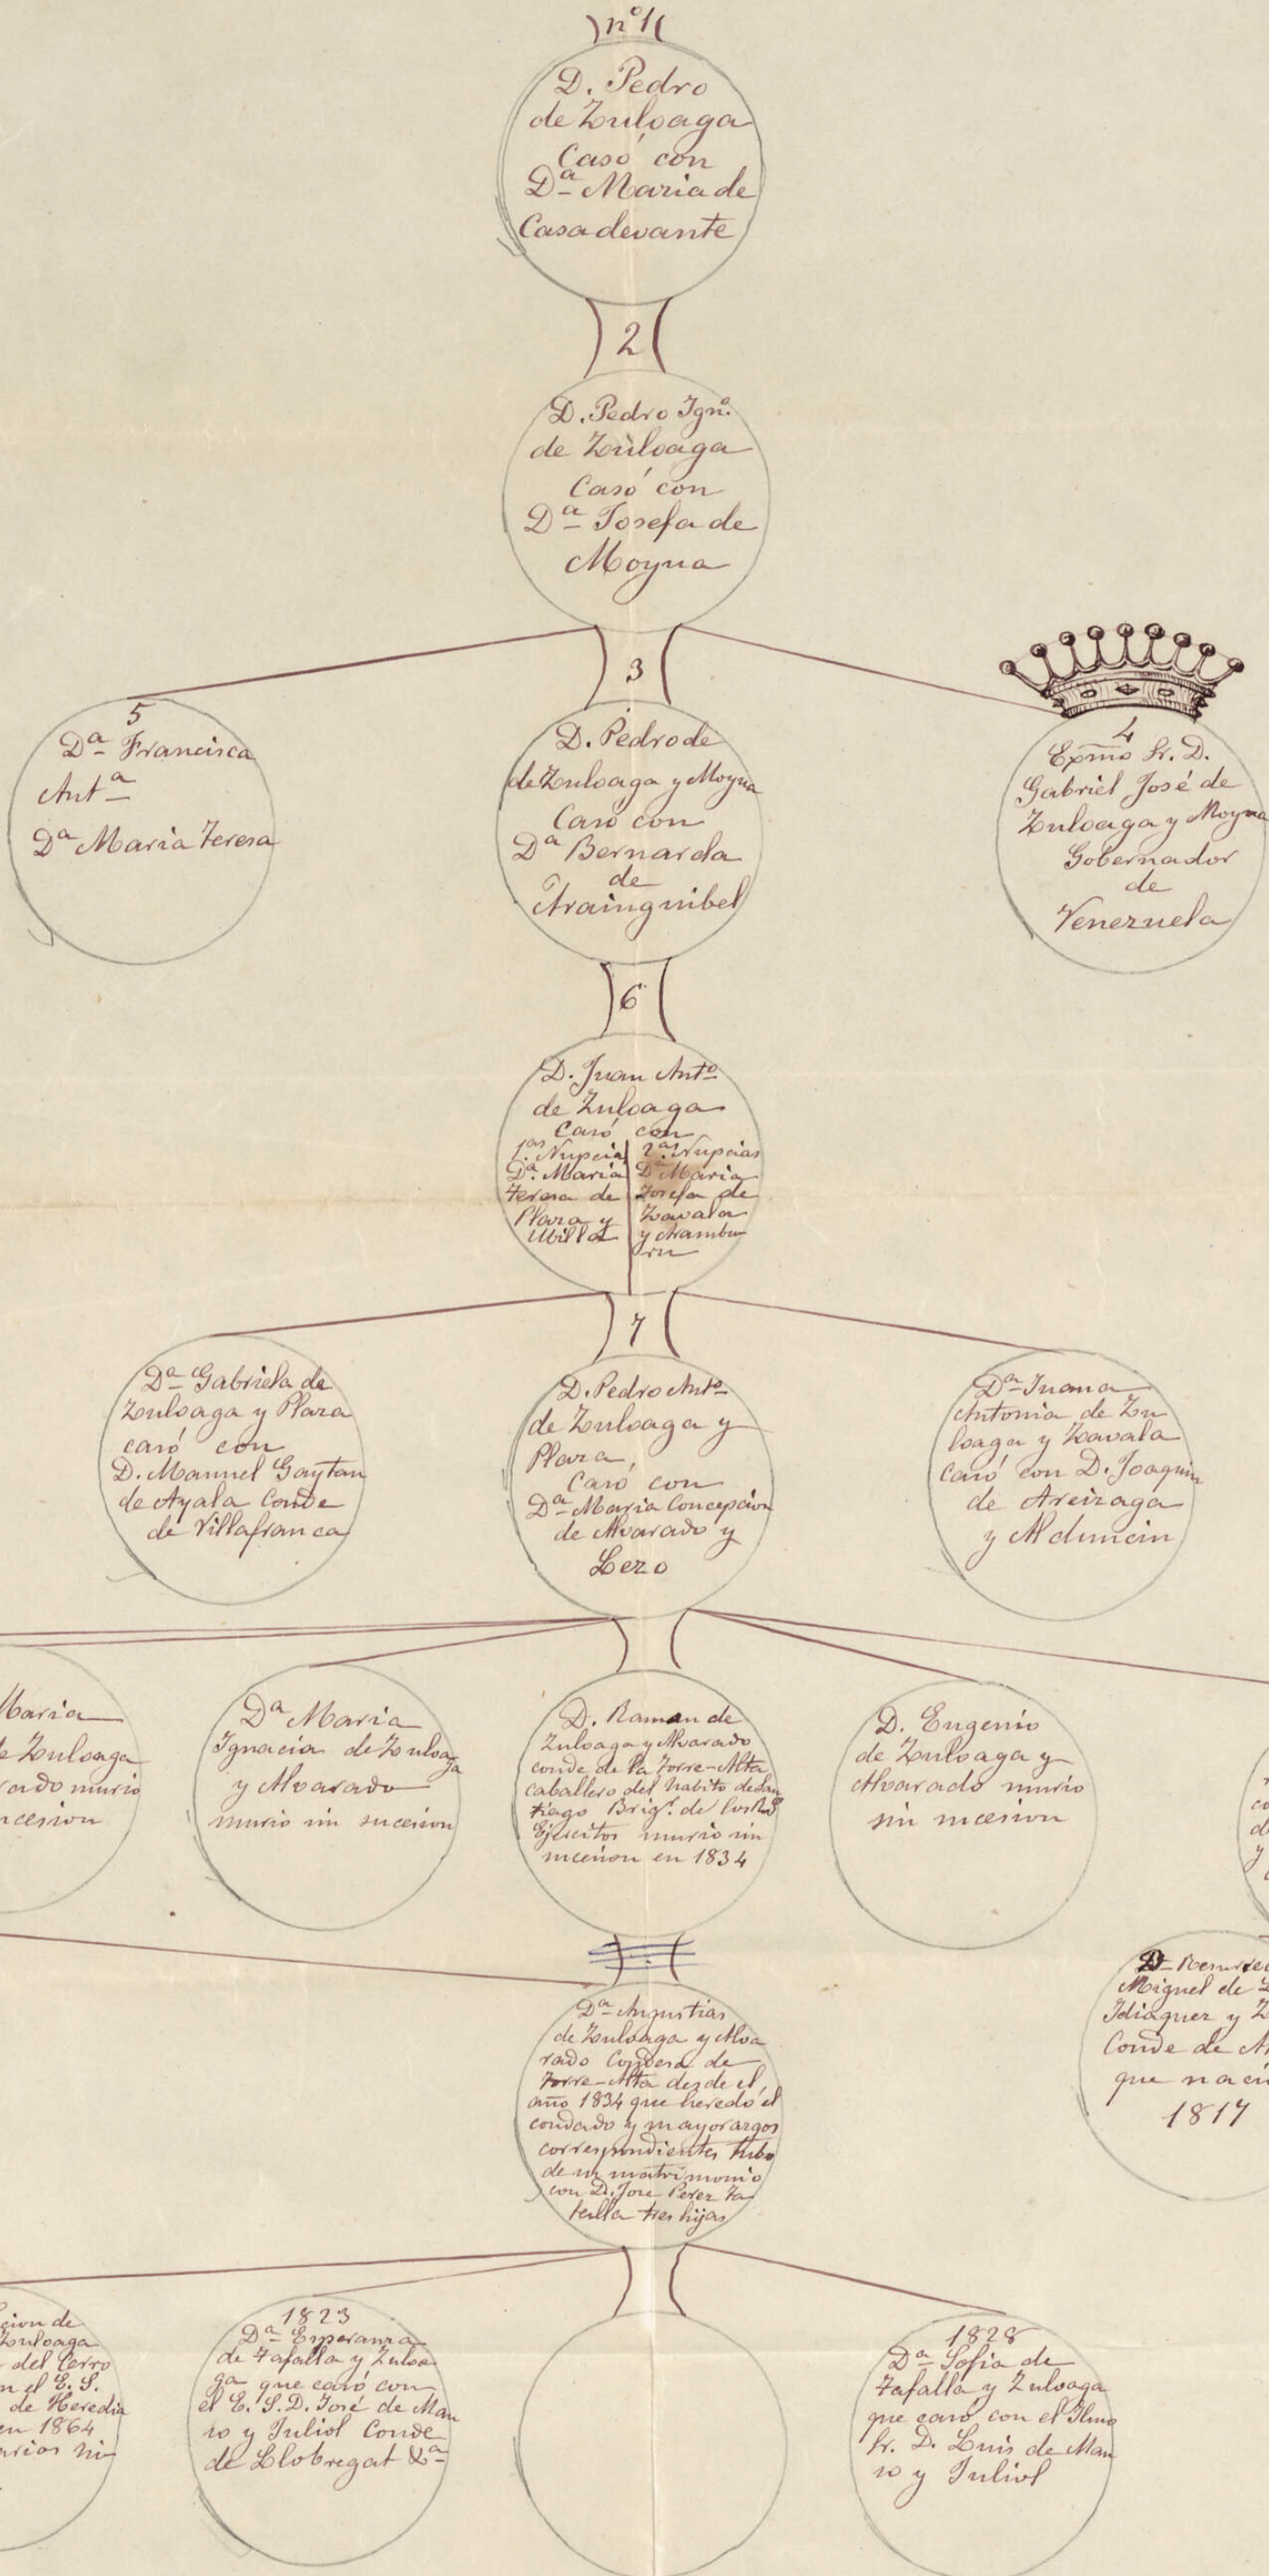 nº 1
D. Pedro
de Zuloaga
Casó con
Dª Maria de
Casadevante
2
D. Pedro Ignº.
de Zuloaga
Casó con
Dª Josefa de
Moyua
3
5
Dª Francisca
Antª
Dª Maria Teresa
D. Pedro de
de Zuloaga y Moyua
Casó con
Dª Bernarda
de
Irainguibel
4
Exmo Sr. D.
Gabriel José de
Zuloaga y Moyua
Gobernador
de
Venezuela
6
D. Juan Antº
de Zuloaga
Casó con
1.as Nupcias
Dª. Maria
Teresa de
Plaza y
Ubilla
2.as Nupcias
Dª Maria
Josefa de
Zavala
y Arambu
ru
7
Dª Gabriela de
Zuloaga y Plaza
casó con
D. Manuel Gaytan
de Ayala Conde
de Villafranca
D. Pedro Antº
de Zuloaga y
Plaza,
Casó con
Dª Maria Concepcion
de Alvarado y
Lezo
Dª Juana
Antonia de Zu
loaga y Zavala
Casó con D. Joaquin
de Areizaga
y Alduncin
Maria
de Zuloaga
rado murio
ucesion
Dª Maria
Ignacia de Zuloaga
y Alvarado
murio sin sucesion
D. Ramon de
Zuloaga y Alvarado
conde de la Torre-Alta
caballero del habito de San
tiago Brigr. de los Rs
Ejercitos murio sin
sucesion en 1834
D. Eugenio
de Zuloaga y
Alvarado murio
sin sucesion
co
d
y
Dª Angustias
de Zuloaga y Alva
rado Condesa de
Torre-Alta desde el
año 1834 que heredó el
condado y mayorazgos
correspondientes tubo
de su matrimonio
con D. Jose Perez Ta
falla tres hijas
Miguel de
Idiaquez y Z
Conde de
que naci
1817
cion de
Zuloaga
del Cerro
n el E. S.
de Heredia
en 1864
arios hi
1823
Dª Esperanza
de Tafalla y Zuloa
ga que casó con
el E. S. D. José de Man
so y Juliol Conde
de Llobregat &ª
1828
Dª Sofia de
Tafalla y Zuloaga
que casó con el Ilmo
Sr. D. Luis de Man
so y Juliol